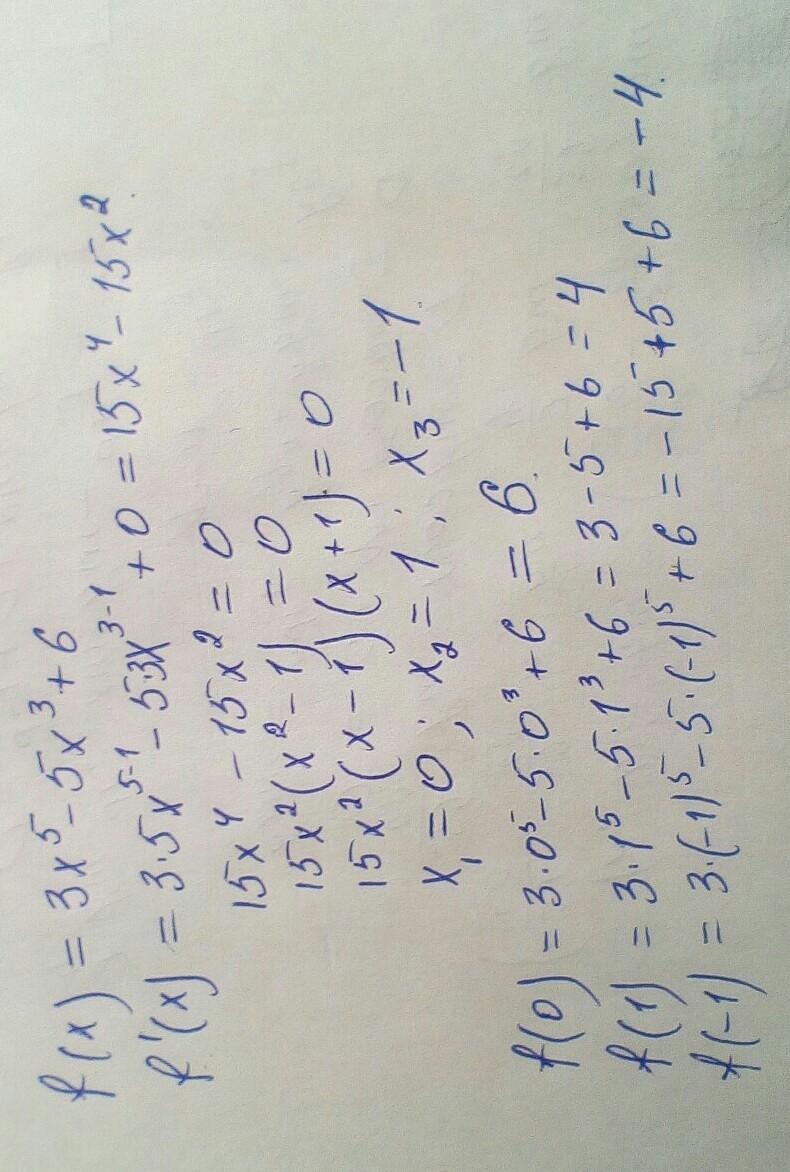 f(x) = 3x⁵ - 5x³ + 6
f'(x) = 3·5x⁵⁻¹ - 5·3x³⁻¹ + 0 = 15x⁴ - 15x².
15x⁴ - 15x² = 0
15x²(x² - 1) = 0
15x²(x - 1)(x + 1) = 0
x₁ = 0; x₂ = 1; x₃ = -1.
f(0) = 3·0⁵ - 5·0³ + 6 = 6.
f(1) = 3·1⁵ - 5·1³ + 6 = 3 - 5 + 6 = 4
f(-1) = 3·(-1)⁵ - 5·(-1)⁵ + 6 = -15 + 5 + 6 = -4.